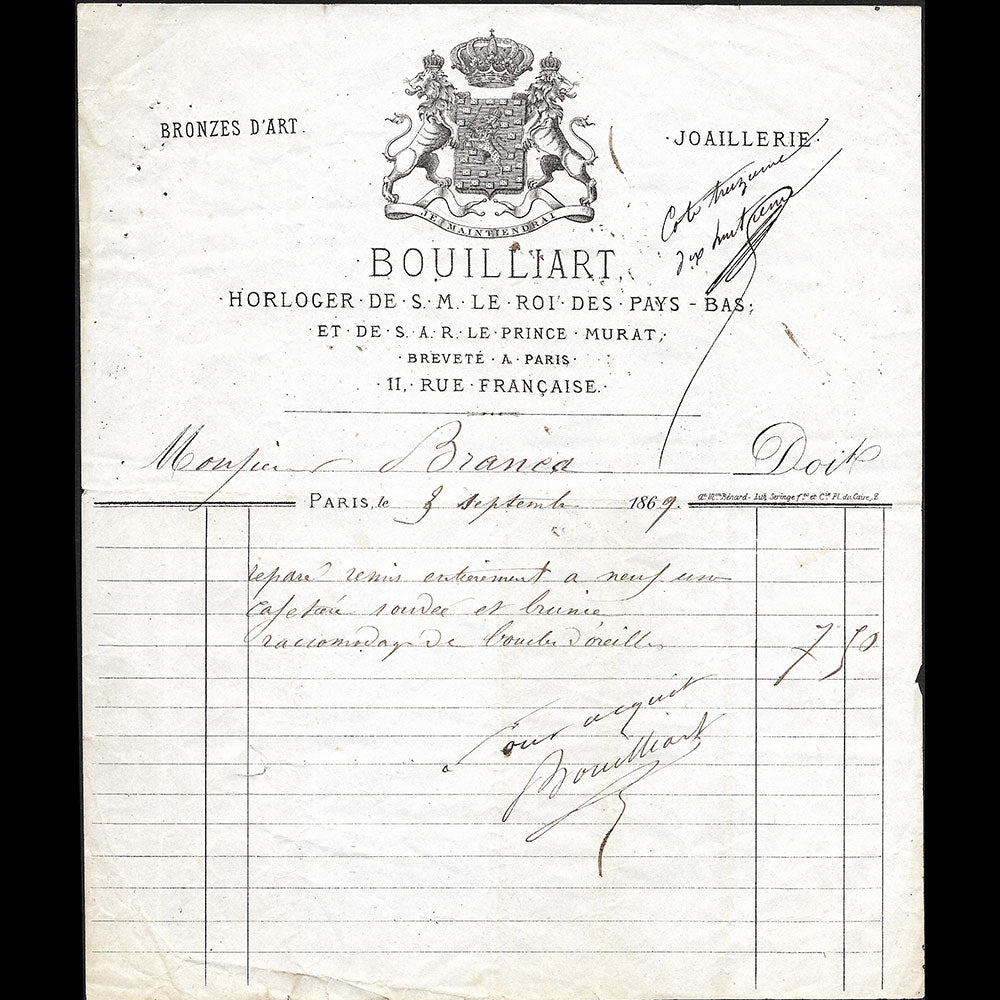 BRONZES D'ART.
·JOAILLERIE·
JE MAINTIENDRAI
Cote treizieme
dix huitieme
·BOUILLIART,·
·HORLOGER·DE·S·M·LE·ROI·DES·PAYS-BAS;
·ET·DE·S·A·R·LE·PRINCE·MURAT,·
·BREVETÉ·A·PARIS·
·11, RUE FRANÇAISE.·
Monsieur Branca Doit
PARIS, le 3 septembre 1869.
An. Mon. Bénard - Lith. Seringe fres et Cie Pl. du Caire, 2
reparé remis entierement a neuf une
cafetière soudee et brunie
raccomodage de boucles d'oreilles 7 50
Pour acquit
Bouilliart